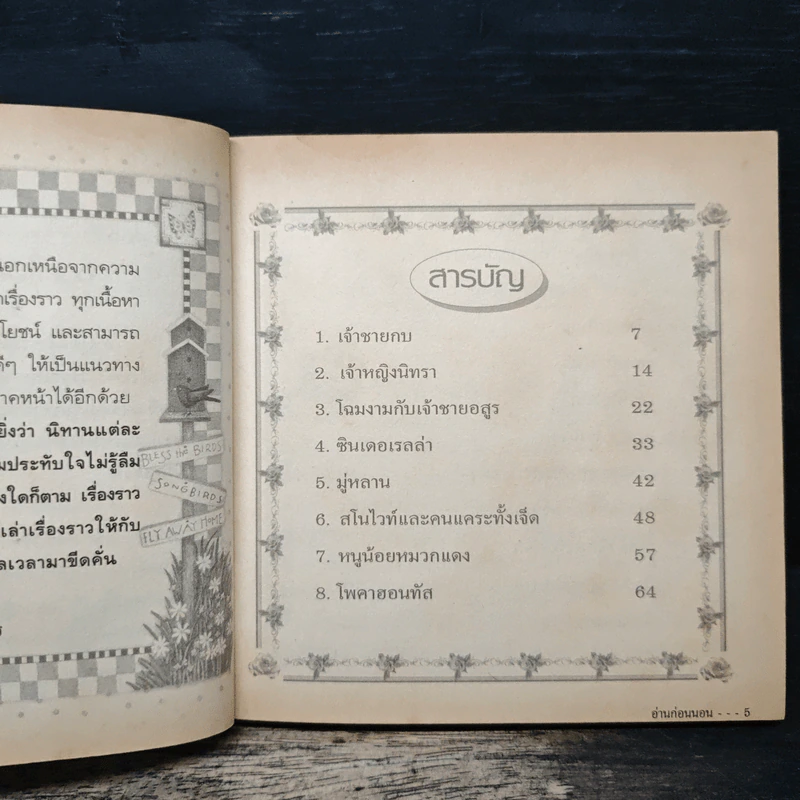 นอกเหนือจากความ
เรื่องราว ทุกเนื้อหา
โยชน์ และสามารถ
ดีๆ ให้เป็นแนวทาง
าคหน้าได้อีกด้วย
ยิ่งว่า นิทานแต่ละ
มประทับใจไม่รู้ลืม
งใดก็ตาม เรื่องราว
เล่าเรื่องราวให้กับ
ลเวลามาขีดคั่น
BLESS HA BIRDS
SONGBIRDS
FLY AWAY HOME
สารบัญ
1. เจ้าชายกบ 7
2. เจ้าหญิงนิทรา 14
3. โฉมงามกับเจ้าชายอสูร 22
4. ซินเดอเรลล่า 33
5. มู่หลาน 42
6. สโนไวท์และคนแคระทั้งเจ็ด 48
7. หนูน้อยหมวกแดง 57
8. โพคาฮอนทัส 64
อ่านก่อนนอน - - - 5